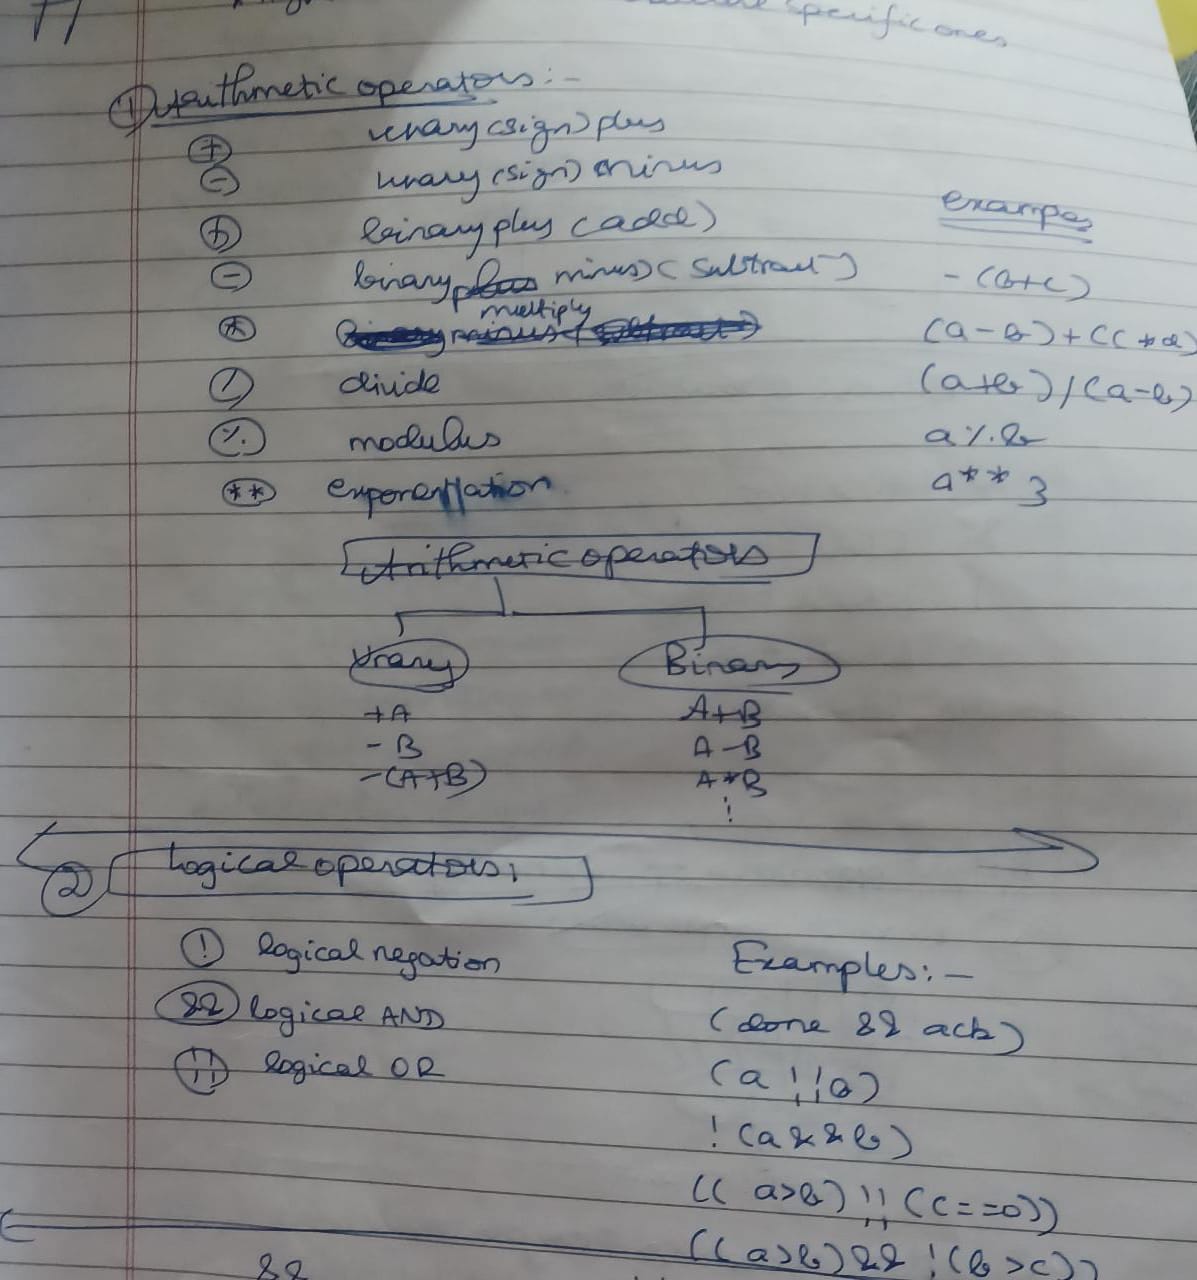 specific ones
① Arithmetic operators :-
+ unary (sign) plus
- unary (sign) minus
+ binary plus (add)
- binary minus (subtract)
* multiply
/ divide
% modulus
** exponentiation
examples
- (b+c)
(a-b)+(c*d)
(a+b)/(a-b)
a%b
a**3
Arithmetic operators
Unary Binary
+A A+B
-B A-B
-(A+B) A*B
② Logical operators:
! logical negation
&& logical AND
|| logical OR
Examples:-
(done && ack)
(a || b)
!(a && b)
((a>b) || (c==0))
((a>b) && !(b>c))
&&